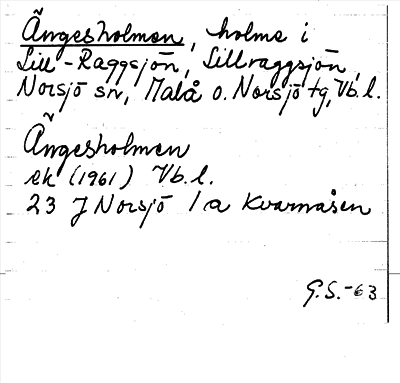 Ängesholmen, holme i
Lill-Raggsjön, Lillraggsjön,
Norsjö sn, Malå o. Norsjö tg, Vb.l.
Ängesholmen
ek (1961) Vb.l.
23 J Norsjö 1a Kvarnåsen
G.S.-63